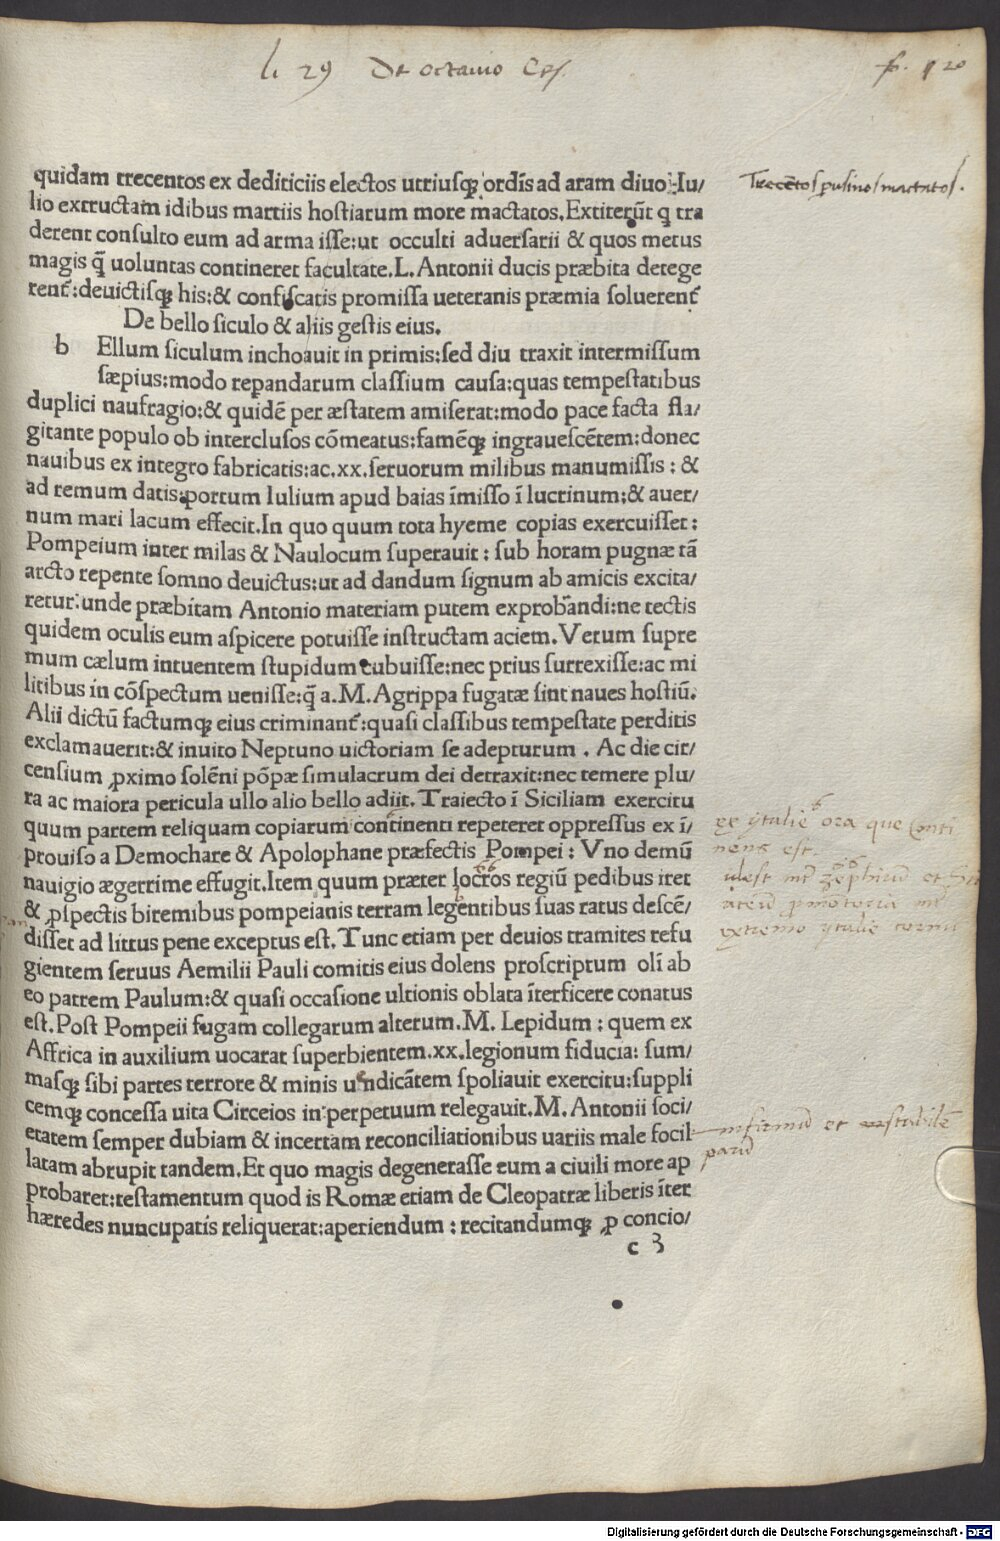 li 29 De octavio Ces.
fo. 20
quidam trecentos ex dediticiis electos utriusq; ordīs ad aram diuo Iu/
lio extructam idibus martiis hostiarum more mactatos. Extiterūt q tra
derent consulto eum ad arma isse: ut occulti aduersarii & quos metus
magis q̄ uoluntas contineret facultate. L. Antonii ducis præbita detege
rent̄: deuictisq; his: & confiscatis promissa ueteranis præmia soluerent̄
Trecētos pusinos mactatos.
De bello siculo & aliis gestis eius.
b Ellum siculum inchoauit in primis: sed diu traxit intermissum
sæpius: modo repandarum classium causa: quas tempestatibus
duplici naufragio: & quidē per æstatem amiserat: modo pace facta fla/
gitante populo ob interclusos cōmeatus: famēq; ingrauescētem: donec
nauibus ex integro fabricatis: ac .xx. seruorum milibus manumissis: &
ad remum datis: portum Iulium apud baias īmisso ī lucrinum; & auer/
num mari lacum effecit. In quo quum tota hyeme copias exercuisset:
Pompeium inter milas & Naulocum superauit: sub horam pugnæ tā
arcto repente somno deuictus: ut ad dandum signum ab amicis excita/
retur: unde præbitam Antonio materiam putem exprobandi: ne rectis
quidem oculis eum aspicere potuisse instructam aciem. Verum supre
mum cælum intuentem stupidum cubuisse: nec prius surrexisse: ac mi
litibus in cōspectum uenisse: q̄ a. M. Agrippa fugatæ sint naues hostiū.
Alii dictū factumq; eius criminant̄: quasi classibus tempestate perditis
exclamauerit: & inuito Neptuno uictoriam se adepturum. Ac die cir/
censium ꝓximo solēni pōpæ simulacrum dei detraxit: nec temere plu/
ra ac maiora pericula ullo alio bello adiit. Traiecto ī Siciliam exercitu
quum partem reliquam copiarum continenti repeteret oppressus ex ī/
prouiso a Demochare & Apolophane præfectis Pompei: Vno demū
nauigio ægerrime effugit. Item quum præter locros regiū pedibus iret
& ꝓspectis biremibus pompeianis terram legentibus suas ratus descē/
disset ad littus pene exceptus est. Tunc etiam per deuios tramites refu
gientem seruus Aemilii Pauli comitis eius dolens proscriptum olī ab
eo patrem Paulum: & quasi occasione ultionis oblata īterficere conatus
est. Post Pompeii fugam collegarum alterum. M. Lepidum: quem ex
Affrica in auxilium uocarat superbientem .xx. legionum fiducia: sum/
masq; sibi partes terrore & minis uendicātem spoliauit exercitu: suppli
cemq; concessa uita Circeios in perpetuum relegauit. M. Antonii soci/
etatem semper dubiam & incertam reconciliationibus uariis male focil
latam abrupit tandem. Et quo magis degenerasse eum a ciuili more ap
probaret: testamentum quod is Romæ etiam de Cleopatræ liberis īter
hæredes nuncupatis reliquerat: aperiendum: recitandumq; ꝓ concio/
c 3
ex ytalie ora que Conti
nens est.
extremo ytalie cornu
infirmū et
parū
Digitalisierung gefördert durch die Deutsche Forschungsgemeinschaft - DFG